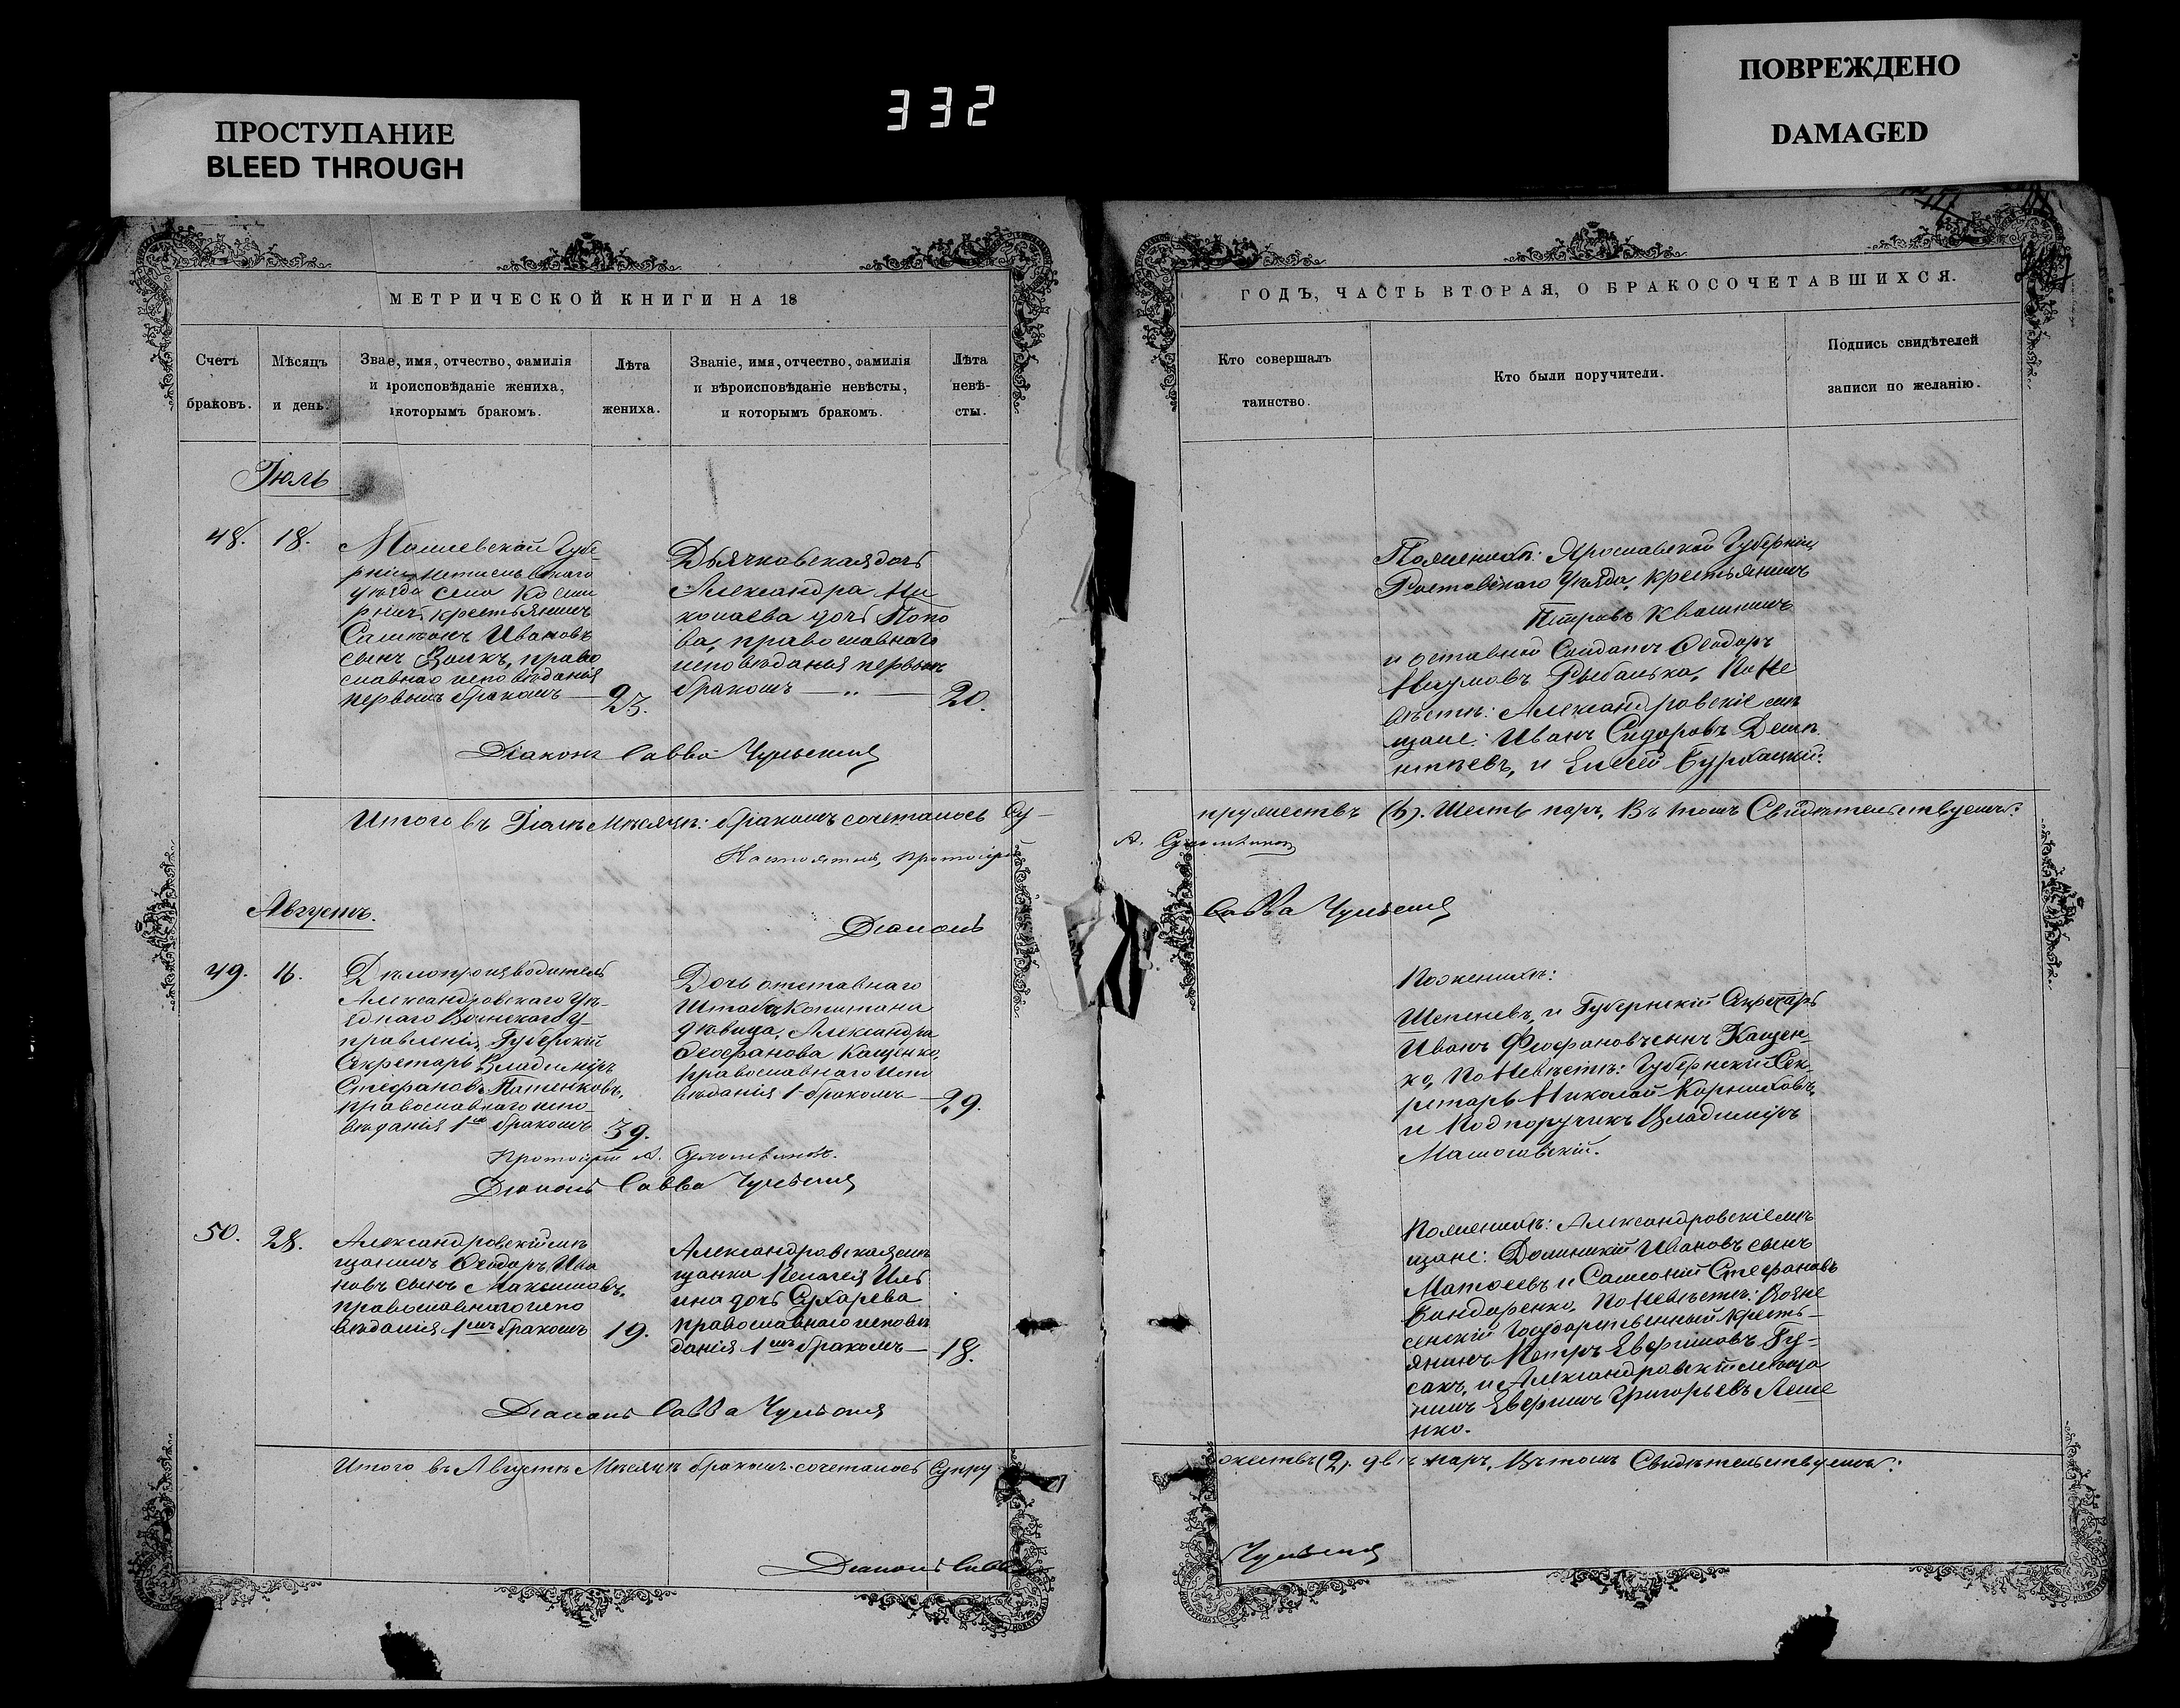 ПРОСТУПАНИЕ
BLEED THROUGH
332
ПОВРЕЖДЕНО
DAMAGED
МЕТРИЧЕСКОЙ КНИГИ НА 18
Счетъ
браковъ.
Мѣсяцъ
и день.
Звае, имя, отчество, фамилія
и іроисповѣданіе жениха,
которымъ бракомъ.
Лѣта
жениха.
Званіе, имя, отчество, фамилія
и вѣроисповѣданіе невѣсты,
и которымъ бракомъ.
Лѣта
невѣ-
сты.
ГОДЪ, ЧАСТЬ ВТОРАЯ, О БРАКОСОЧЕТАВШИХСЯ.
Кто совершалъ
таинство.
Кто были поручители.
Подпись свидѣтелей
записи по желанію.
Іюль
48. 18.
Губе-
рніи,
уѣзда села
крестьянинъ
Ивановъ
сынъ право
славнаго исповѣданія
первымъ бракомъ — 25.
Дьячковская дочь
Александра Ни
колаева дочь Попо
ва, православнаго
исповѣданія первымъ
бракомъ — „ — 20.
Діаконъ Савва
Ярославской Губерніи,
Ростовскаго Уѣзда, крестьянинъ
Петровъ Квашнинъ
и Солдатъ Ѳеодоръ
Наумовъ Рыбалка, По Не
вѣстѣ: Александровскіе мѣ
щане: Иванъ Сидоровъ Демѣ
нтьевъ, и Елисей
Итого въ Іюлѣ Мѣсяцѣ: бракомъ сочеталось Су-
пружествъ (6). Шесть паръ, Въ томъ Свидѣтельствуемъ:
Настоятель, Протоіерей
А.
Августъ.
Діаконъ
Савва
49. 16.
Дѣлопроизводитель
Александровскаго Уѣ-
зднаго Воинскаго У-
правленія, Губернскій
Секретарь Владиміръ
Стефановъ
православнаго испо-
вѣданія 1мъ бракомъ 39.
Дочь отставнаго
Штабсъ Капитана
дѣвица, Александра
Ѳеофанова Кащенко,
православнаго испо
вѣданія 1 бракомъ — 29.
По женихѣ:
и Губернскій Секретарь
Иванъ Феофановъ сынъ Кащен-
ко, По Невѣстѣ: Губернскій Сек-
ретарь Николай Корниловъ,
и Подпоручикъ Владиміръ
Протоіерей А.
Діаконъ Савва
50. 28.
Александровскій мѣ
щанинъ Ѳеодоръ Ива
новъ сынъ Максимовъ,
православнаго испо
вѣданія 1мъ бракомъ 19.
Александровская мѣ
щанка Пелагея Иль
ина дочь Сухарева
православнаго исповѣ
данія 1мъ бракомъ — 18.
По женихѣ: Александровскіе мѣ
щане: Ивановъ сынъ
Матвеевъ и Стефановъ
Бондаренко, По Невѣстѣ: Возне
сенскій Государственный Кресть-
янинъ Петръ Евфимовъ Гу-
сакъ, и Александровскій мѣща
нинъ Григорьевъ Леше
нко.
Діаконъ Савва
Итого въ Августѣ Мѣсяцѣ бракомъ сочеталось Супру
жествъ (2). двѣ паръ, Въ томъ Свидѣтельствуемъ:
Діаконъ Савва